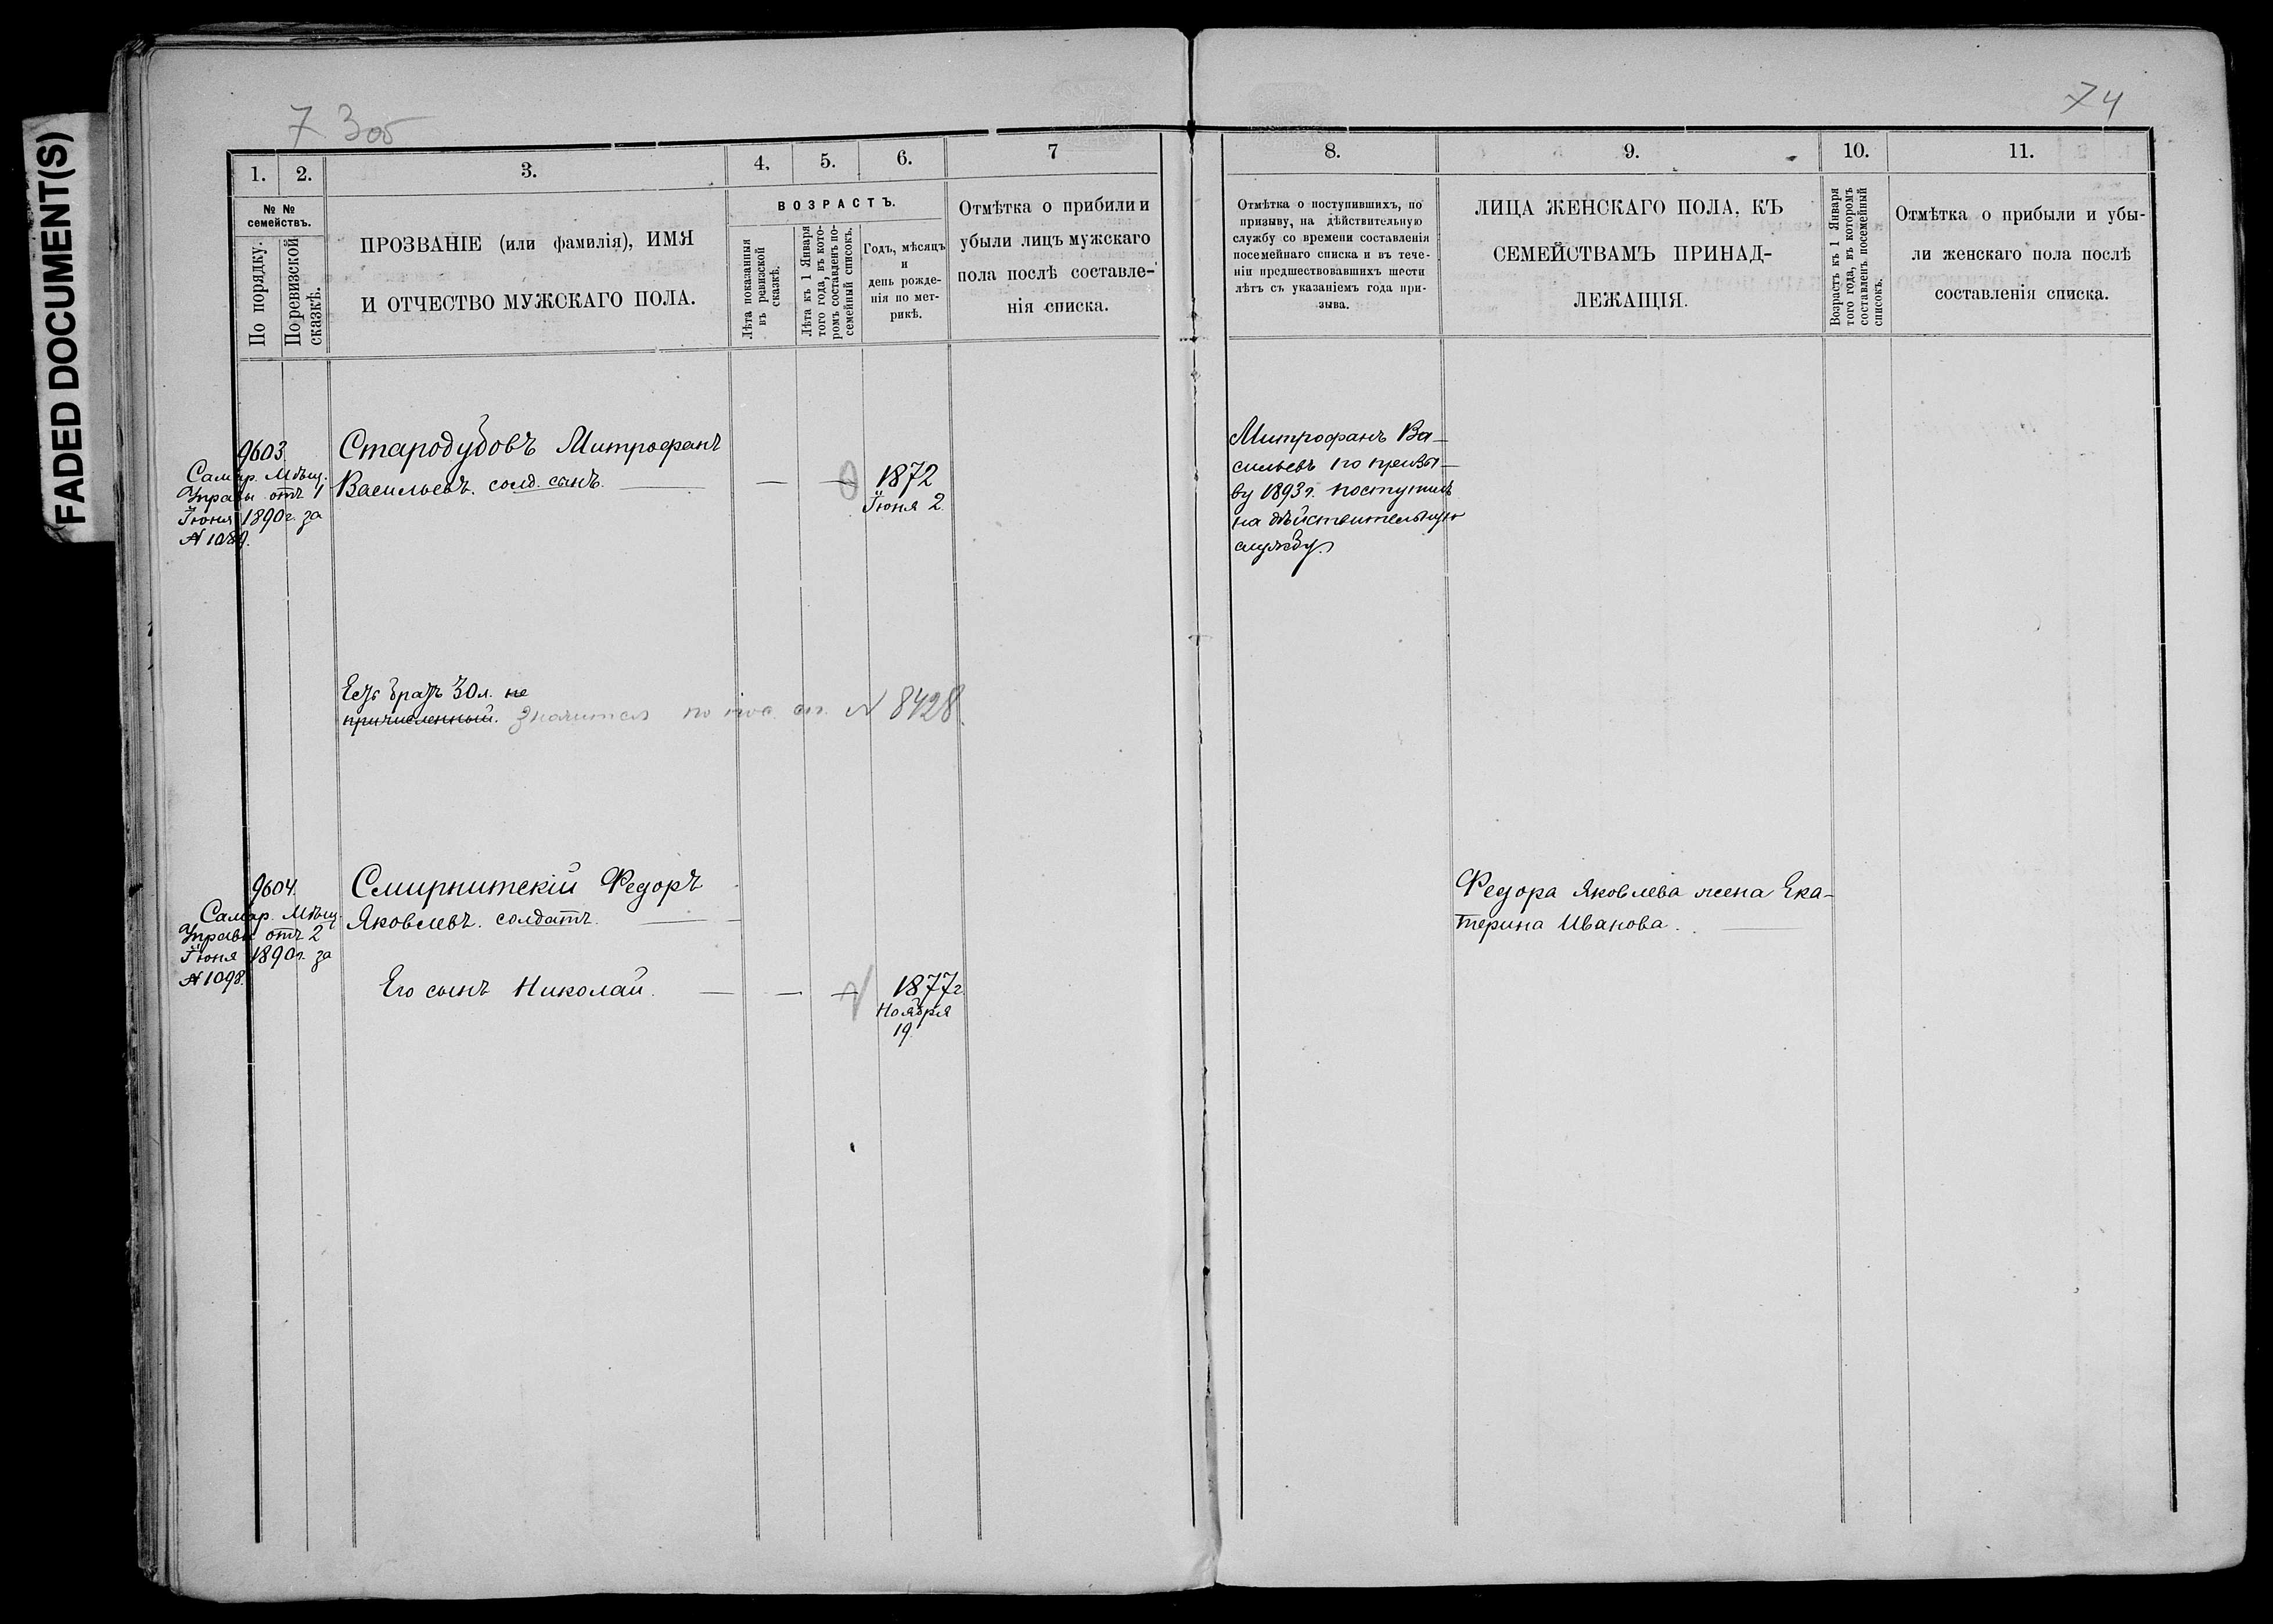 FADED DOCUMENT(S)
73об
74
1. 2. 3. 4. 5. 6. 7
№ №
семействъ.
По порядку.
По ревизской
сказкѣ.
ПРОЗВАНІЕ (или фамилія), ИМЯ
И ОТЧЕСТВО МУЖСКАГО ПОЛА.
ВОЗРАСТЪ.
Лѣта показанныя
въ ревизской
сказкѣ.
Лѣта къ 1 Января
того года, въ кото-
ромъ составленъ по-
семейный списокъ.
Годъ, мѣсяцъ
и
день рожде-
нія по мет-
рикѣ.
Отмѣтка о прибыли и
убыли лицъ мужскаго
пола послѣ составле-
нія списка.
9603.
Самар. Мѣщ.
Управы отъ 1
Іюня 1890г. за
№ 1089.
Стародубовъ Митрофанъ
Васильевъ. солд. сынъ.
— —
1872
Іюня 2.
Есть братъ 30 л. не
причисленный. Значится по пос. сп. № 8428.
9604.
Самар. Мѣщ.
Управы отъ 2
Іюня 1890г. за
№ 1098.
Смирнитскій Федоръ
Яковлевъ. солдатъ.
Его сынъ Николай. — — —
1877г.
Ноября
19.
8. 9. 10. 11.
Отмѣтка о поступившихъ, по
призыву, на дѣйствительную
службу со времени составленія
посемейнаго списка и въ тече-
ніи предшествовавшихъ шести
лѣтъ съ указаніемъ года при-
зыва.
ЛИЦА ЖЕНСКАГО ПОЛА, КЪ
СЕМЕЙСТВАМЪ ПРИНАД-
ЛЕЖАЩІЯ.
Возрастъ къ 1 Января
того года, въ которомъ
составленъ посемейный
списокъ.
Отмѣтка о прибыли и убы-
ли женскаго пола послѣ
составленія списка.
Митрофанъ Ва-
сильевъ по призы-
ву 1893г. поступилъ
на дѣйствительную
службу.
Федора Яковлева жена Ека-
терина Иванова.